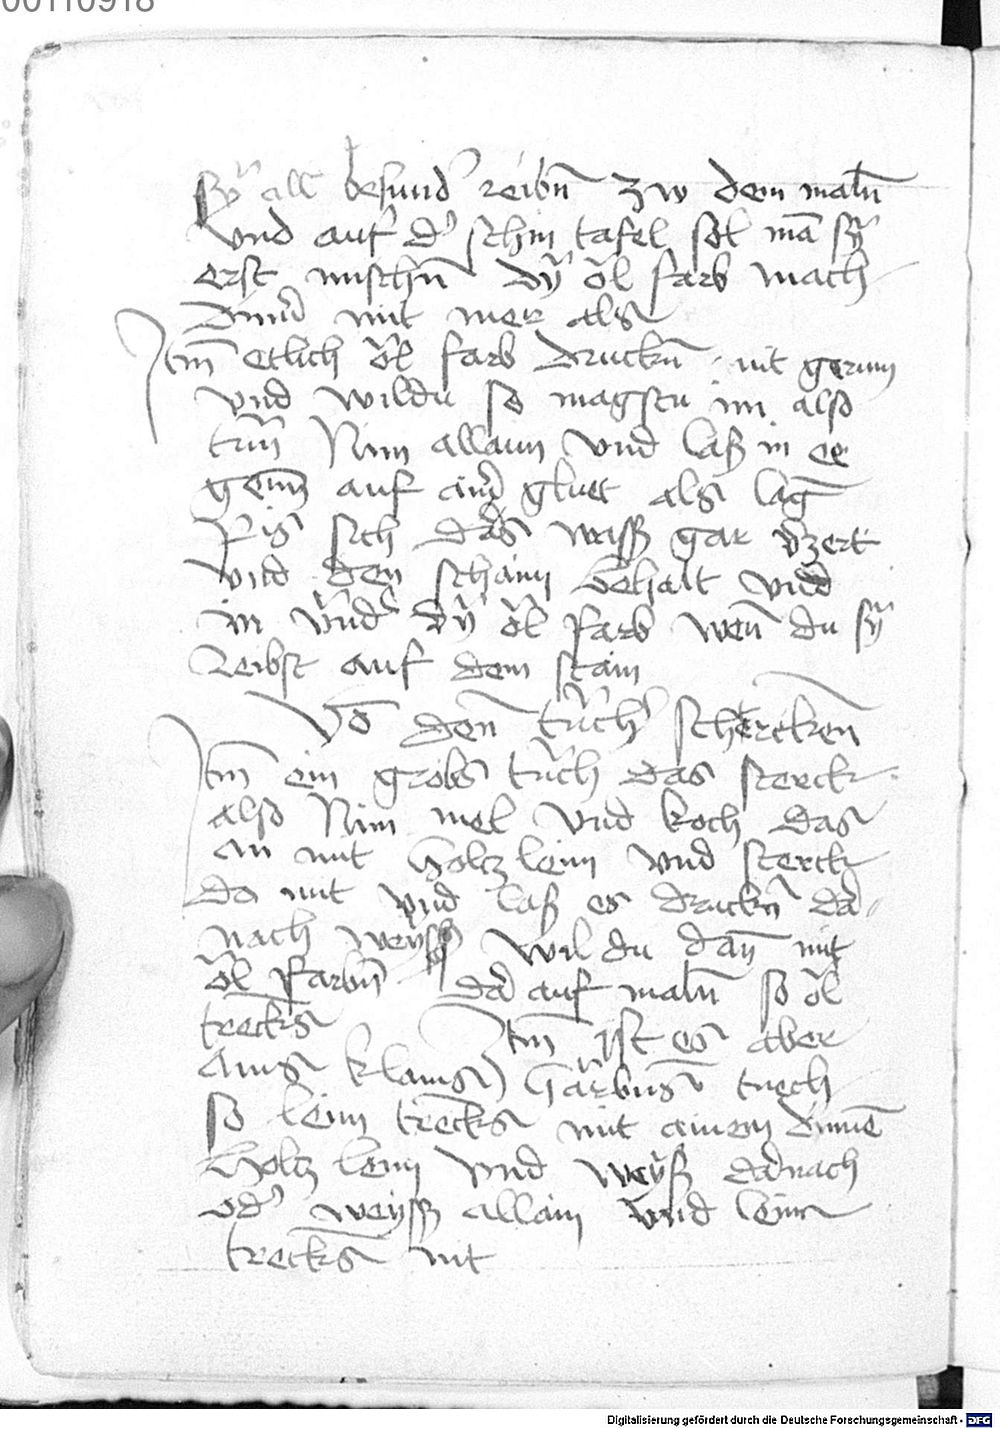 00110918
sy all besund reibn zw dem maln
vnd auf d schin tafel sol ma sy
erst mischn dy öl farb mach
dünd mit mer als
Itm etlich öl farb druckn nit gerinn
vnd wildu so magstu im also
tun Nim allaun vnd laß in ee
auf ain gluet als lag
sich das wass gar vzert
vnd den schaim behalt vnd
in vnd dy öl farb wen du sy
Reibst auf dem stain
Vo den tuch stercken
Itm ein grobs tuch das sterck
also Nim mel vnd koch das
an mit holtz leim vnd sterck
da mit vnd laß es druckn da
nach weyß wil du dan mit
öl farbn dar auf maln so öl
trecks Itm ist es aber
ains klains garbns tuech
so leim trecks mit ainem dunne
holtz leim vnd weyß darnach
od weyß allain vnd leim
trecks nit
Digitalisierung gefördert durch die Deutsche Forschungsgemeinschaft - DFG